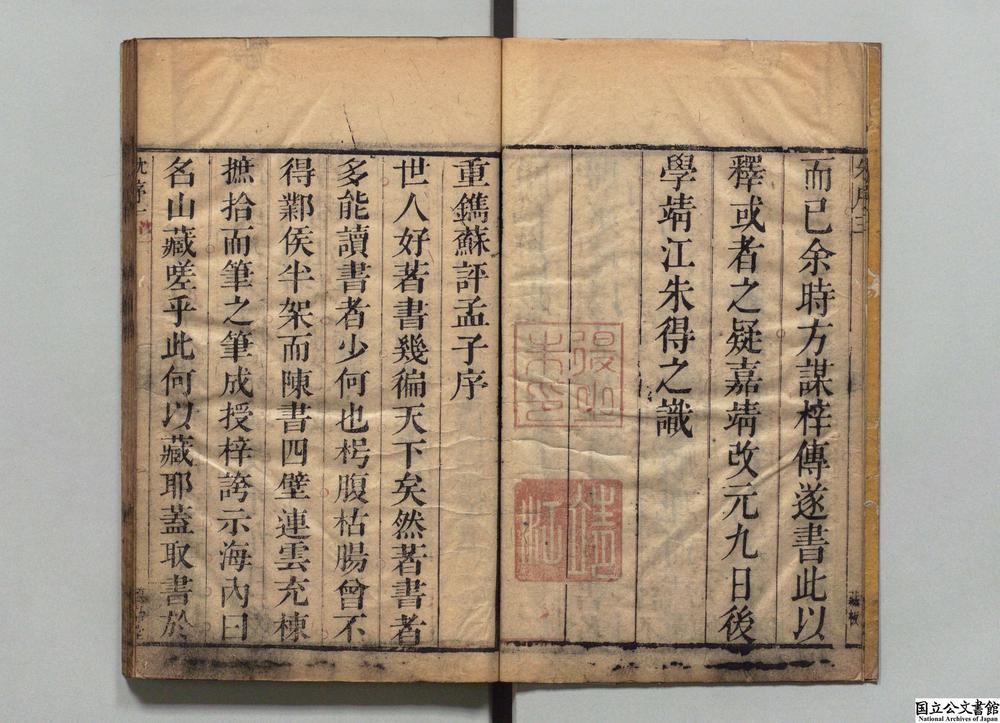 朱序三
而已余時方謀梓傳遂書此以
釋或者之疑嘉靖改元九日後
學靖江朱得之識
重鐫蘇評孟子序
世人好著書幾徧天下矣然著書者
多能讀書者少何也枵腹枯腸曾不
得鄴侯半架而陳書四壁連雲充棟
摭拾而筆之筆成授梓誇示海內曰
名山藏嗟乎此何以藏耶蓋取書於
沈序一
国立公文書館
National Archives of Japan